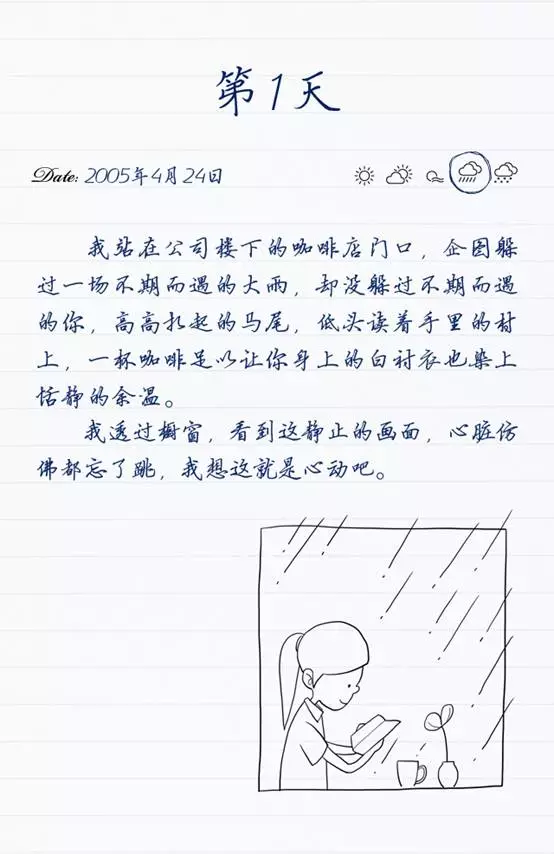 第1天
Date: 2005年4月24日
我站在公司楼下的咖啡店门口，企图躲
过一场不期而遇的大雨，却没躲过不期而遇
的你，高高扎起的马尾，低头读着手里的村
上，一杯咖啡足以让你身上的白衬衣也染上
恬静的余温。
我透过橱窗，看到这静止的画面，心脏仿
佛都忘了跳，我想这就是心动吧。